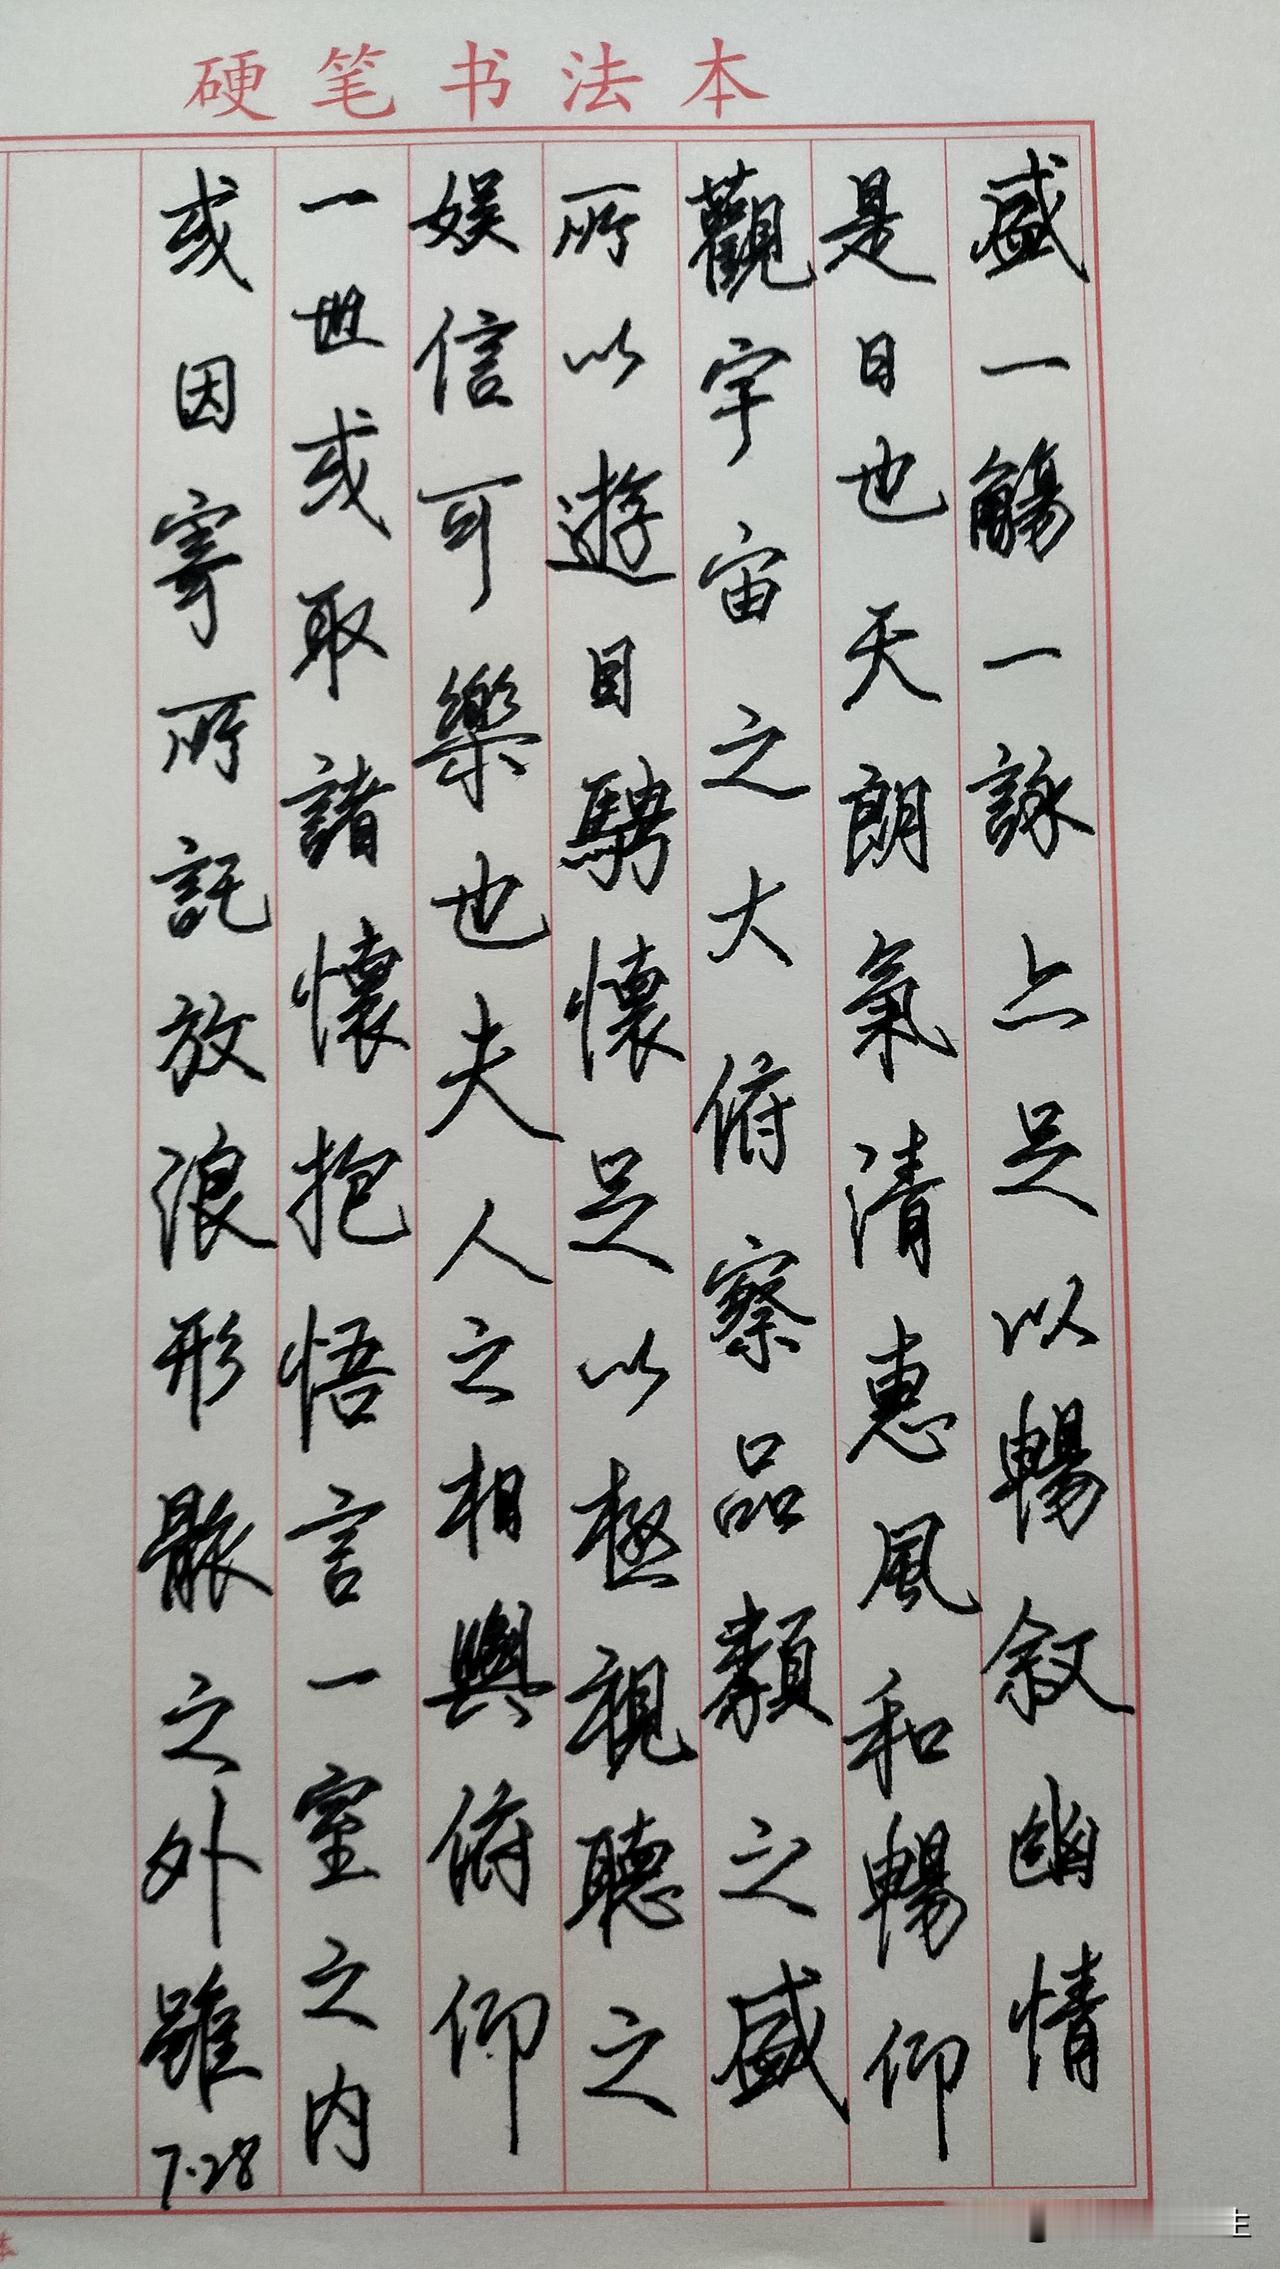 硬笔书法本
盛一觴一詠亦足以暢叙幽情
是日也天朗氣清惠風和暢仰
觀宇宙之大俯察品類之盛
所以遊目騁懷足以極視聽之
娱信可樂也夫人之相與俯仰
一世或取諸懷抱悟言一室之内
或因寄所託放浪形骸之外雖
7.28